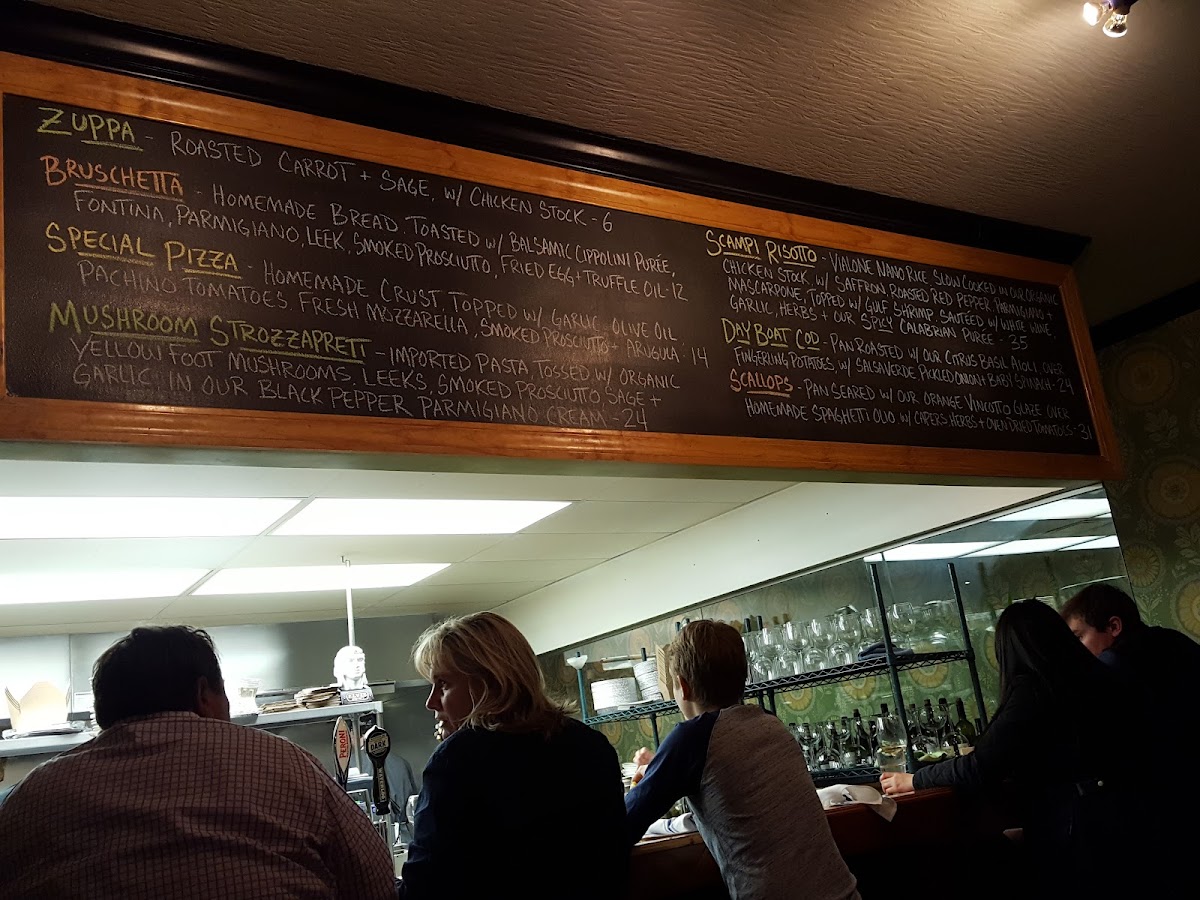 ZUPPA - ROASTED CARROT + SAGE, W/ CHICKEN STOCK - 6
BRUSCHETTA - HOMEMADE BREAD TOASTED W/ BALSAMIC CIPPOLINI PURÉE,
FONTINA, PARMIGIANO, LEEK, SMOKED PROSCIUTTO, FRIED EGG + TRUFFLE OIL - 12
SPECIAL PIZZA - HOMEMADE CRUST TOPPED W/ GARLIC OLIVE OIL
PACHINO TOMATOES, FRESH MOZZARELLA, SMOKED PROSCIUTTO + ARUGULA - 14
MUSHROOM STROZZAPRETI - IMPORTED PASTA TOSSED W/ ORGANIC
YELLOW FOOT MUSHROOMS, LEEKS, SMOKED PROSCIUTTO SAGE +
GARLIC IN OUR BLACK PEPPER PARMIGIANO CREAM - 24
SCAMPI RISOTTO - VIALONE NANO RICE SLOW COOKED IN OUR ORGANIC
CHICKEN STOCK, W/ SAFFRON ROASTED RED PEPPER PARMIGIANO +
MASCARPONE, TOPPED W/ GULF SHRIMP SAUTÉED W/ WHITE WINE,
GARLIC, HERBS + OUR SPICY CALABRIAN PURÉE - 35
DAY BOAT COD - PAN ROASTED W/ OUR CITRUS BASIL AIOLI OVER
FINGERLING POTATOES, W/ SALSA VERDE, PICKLED ONION + BABY SPINACH - 24
SCALLOPS - PAN SEARED W/ OUR ORANGE VINCOTTO GLAZE OVER
HOMEMADE SPAGHETTI OLIO W/ CAPERS, HERBS + OVEN DRIED TOMATOES - 31
PERONI
DARK